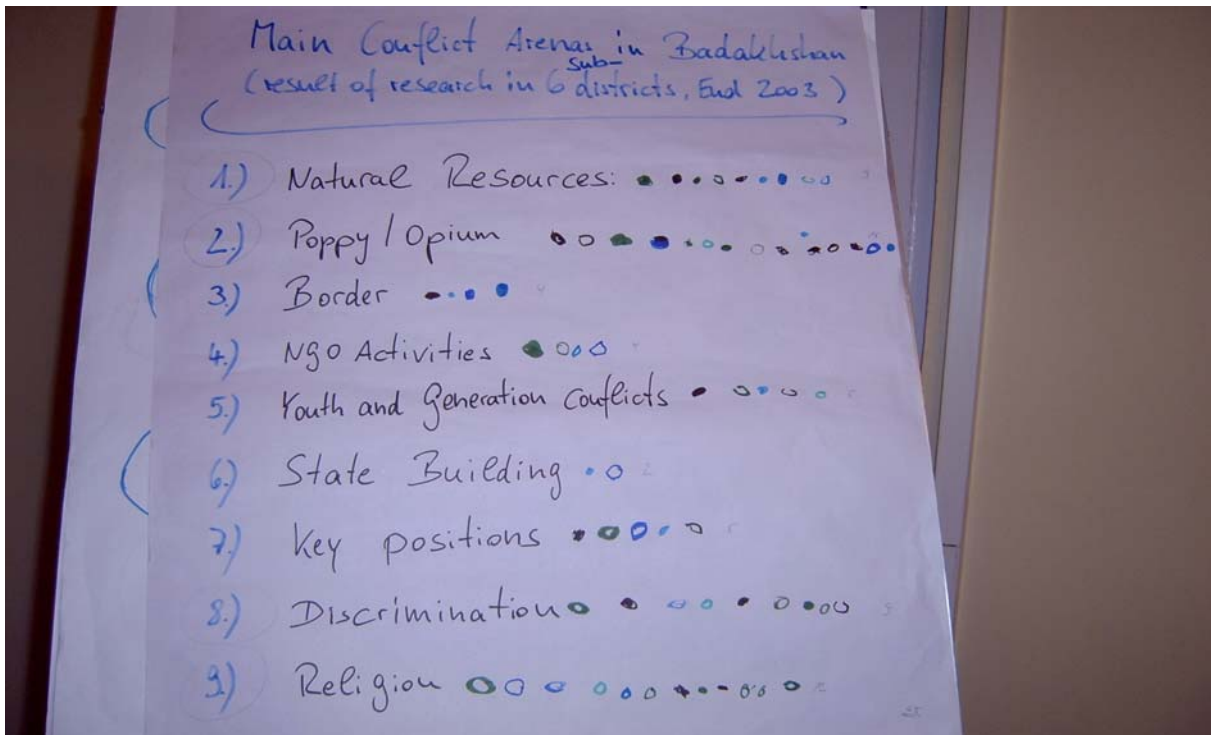 Main Conflict Arenas in Badakhshan
(result of research in 6 sub-districts, End 2003)
1.) Natural Resources:
2.) Poppy / Opium
3.) Border
4.) NGO Activities
5.) Youth and Generation Conflicts
6.) State Building
7.) Key positions
8.) Discrimination
9.) Religion